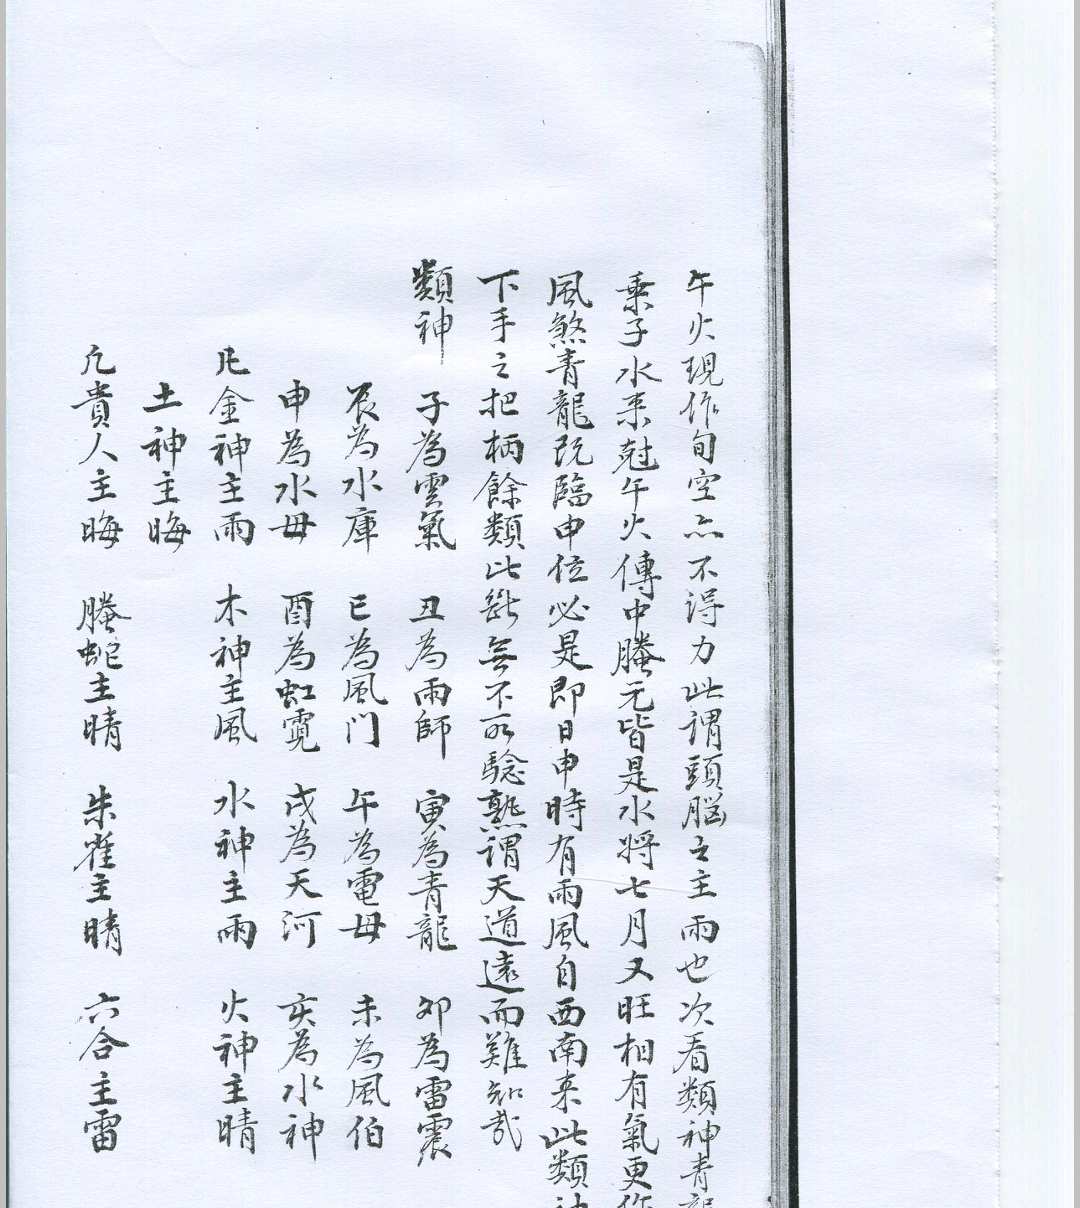 午火現作旬空亦不得力此謂頭腦之主雨也次看類神青龍
乘子水来尅午火傳中騰元皆是水將七月又旺相有氣更作
風煞青龍既臨申位必是即日申時有雨風自西南来此類神
下手之把柄餘類此断無不所驗熟謂天道遠而難知哉
類神 子為雲氣 丑為雨師 寅為青龍 卯為雷震
辰為水庫 巳為風门 午為電母 未為風伯
申為水母 酉為虹霓 戌為天河 亥為水神
凡金神主雨 木神主風 水神主雨 火神主晴
土神主晦
凡貴人主晦 騰蛇主晴 朱雀主晴 六合主雷